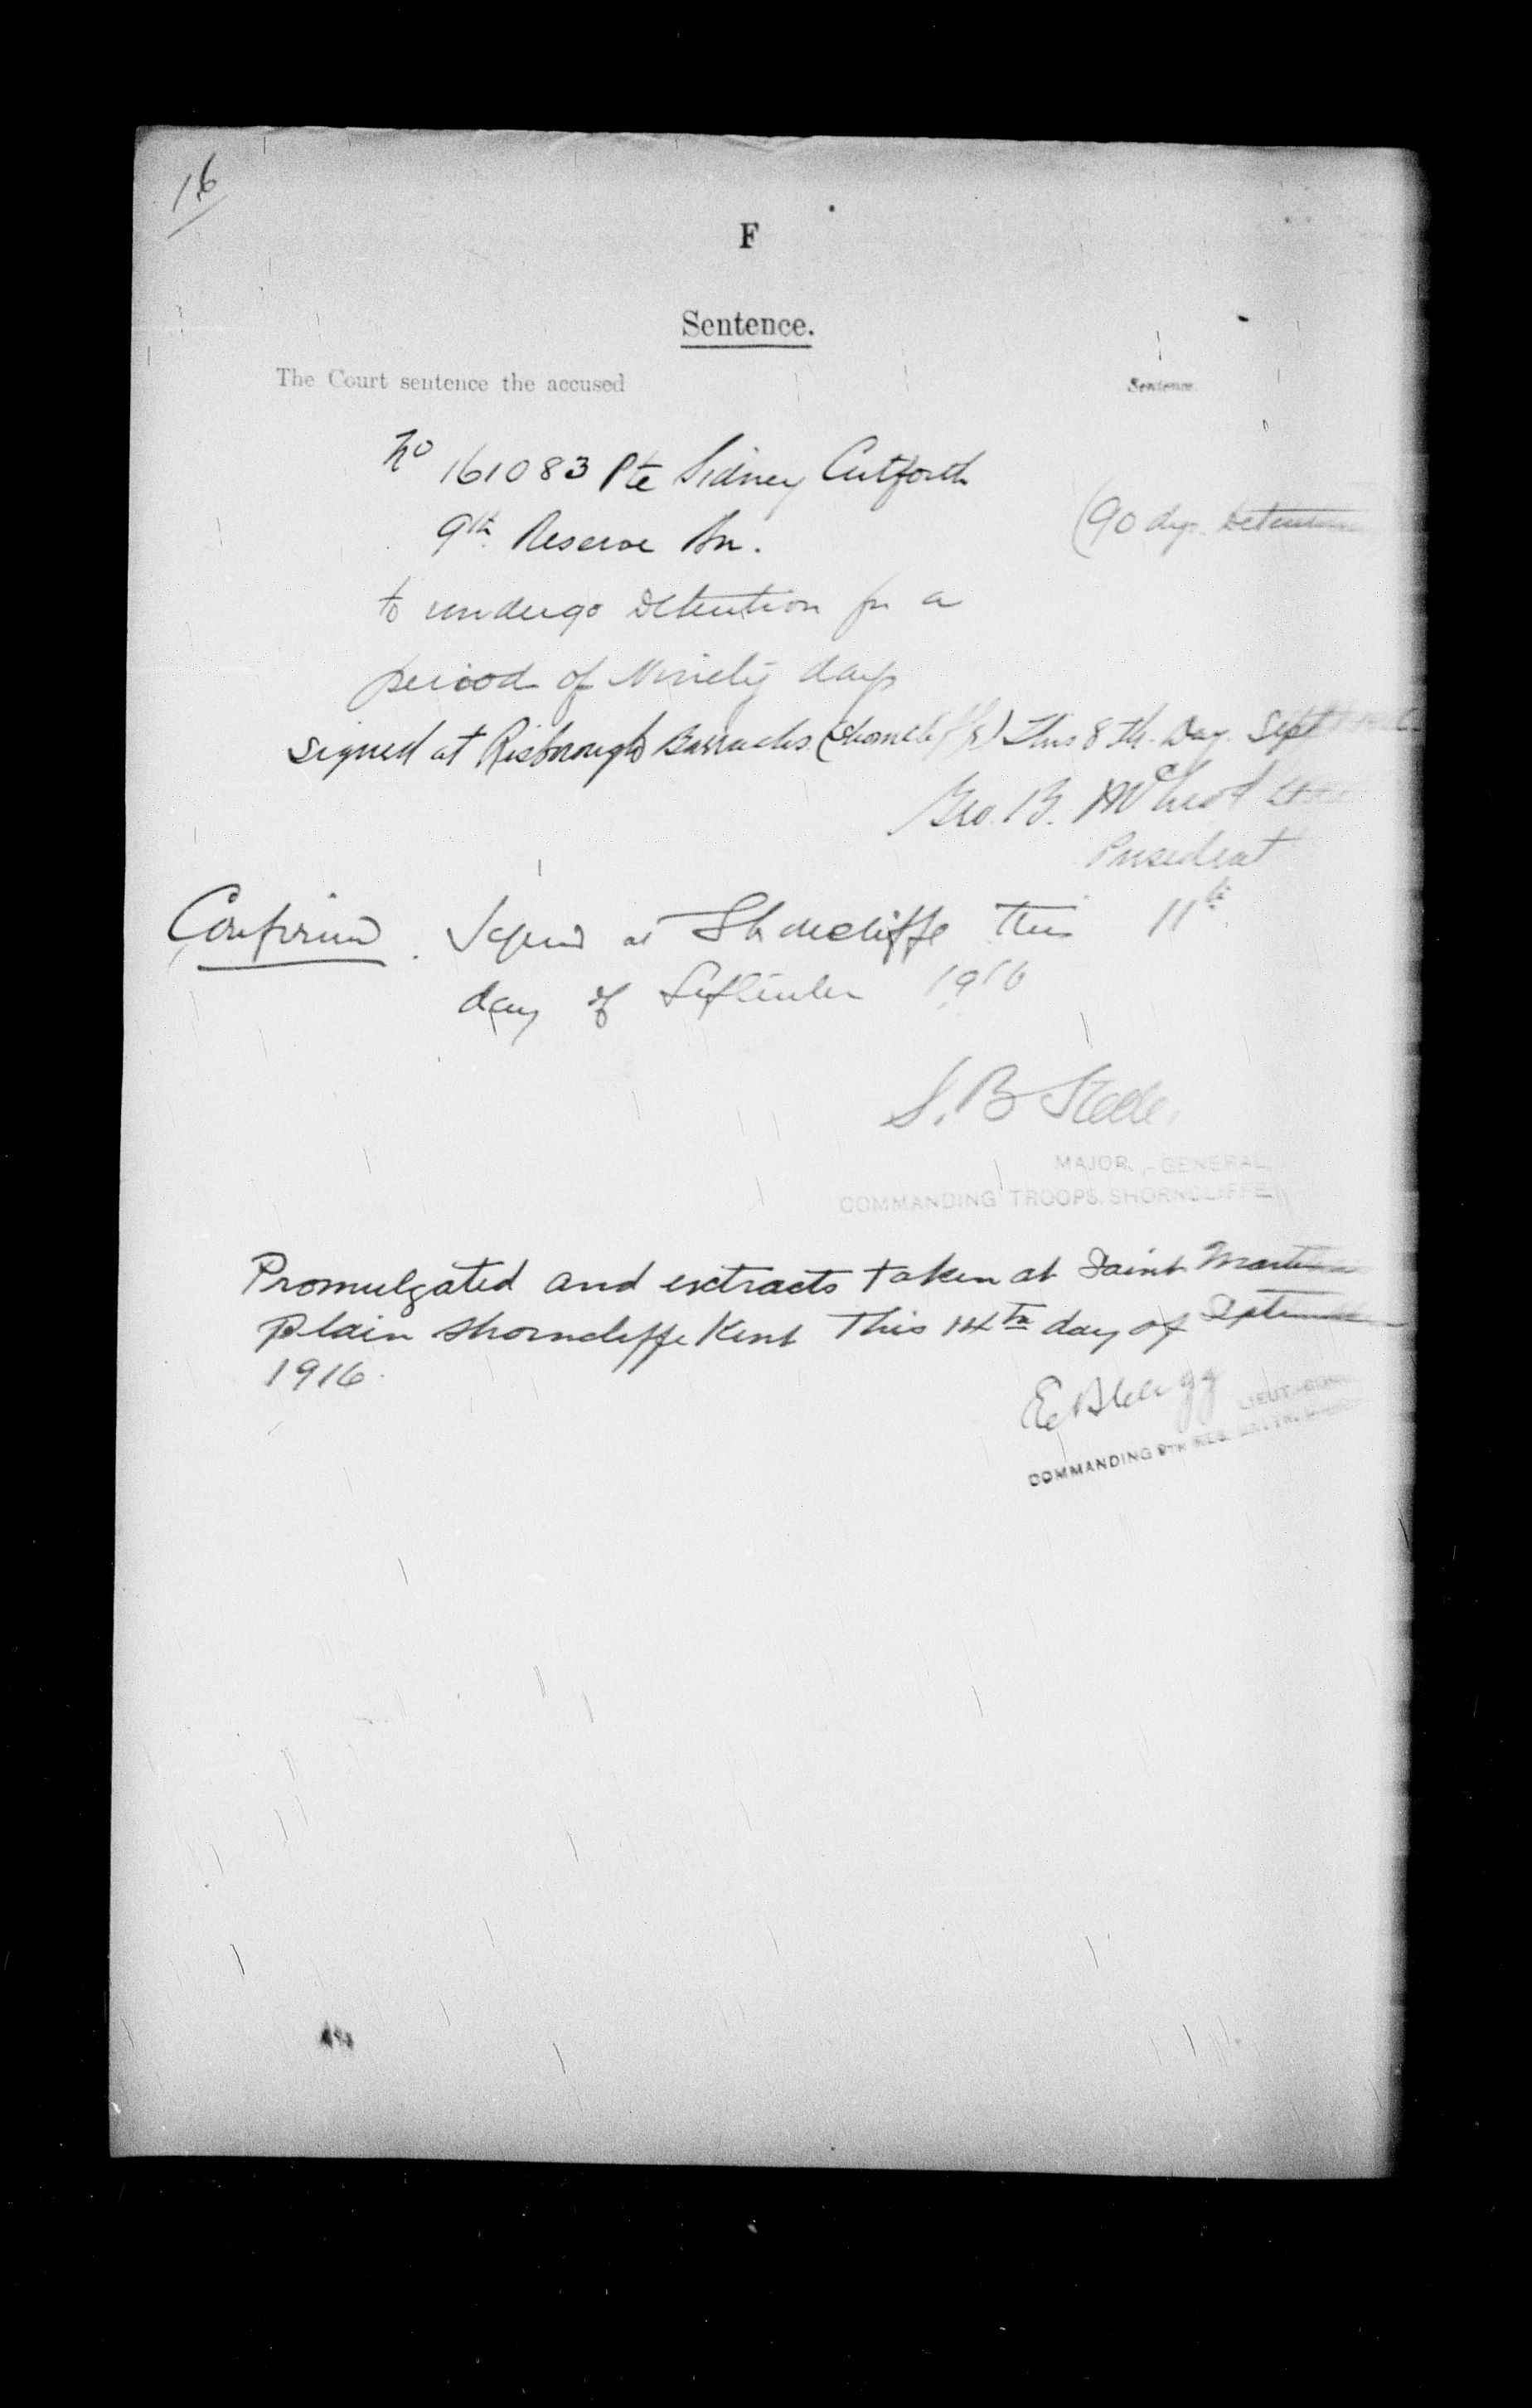 16
F
Sentence.
The Court sentence the accused
Sentence.
No 161083 Pte Sidney Cutforth
9th Reserve Bn.
(90 days Detention
to undergo Detention for a
period of Ninety days
signed at Risborough Barracks (Shorncliffe) This 8th Day Sept
Geo. B.
President
Confirmed. Signed at Shorncliffe this 11th
day of September 1916
S. B Steele
MAJOR-GENERAL
COMMANDING TROOPS. SHORNCLIFFE
Promulgated and extracts taken at Saint Martins
Plain Shorncliffe Kent This 14th day of September
1916.
LIEUT.-COL
COMMANDING 9TH RES. BN.